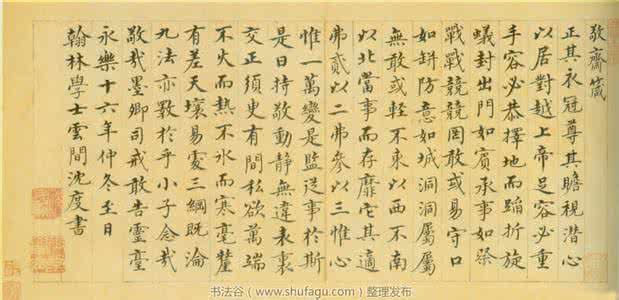 敬齋箴
正其衣冠尊其瞻視潛心
以居對越上帝足容必重
手容必恭擇地而蹈折旋
蟻封出門如賓承事如祭
戰戰兢兢罔敢或易守口
如缾防意如城洞洞屬屬
無敢或輕不東以西不南
以北當事而存靡它其適
弗貳以二弗參以三惟心
惟一萬變是監從事於斯
是曰持敬動靜無違表裏
交正須臾有間私欲萬端
不火而熱不冰而寒毫釐
有差天壤易處三綱既淪
九法亦斁於乎小子念哉
敬哉墨卿司戒敢告靈臺
永樂十六年仲冬至日
翰林學士雲間沈度書
书法谷（www.shufagu.com）整理发布